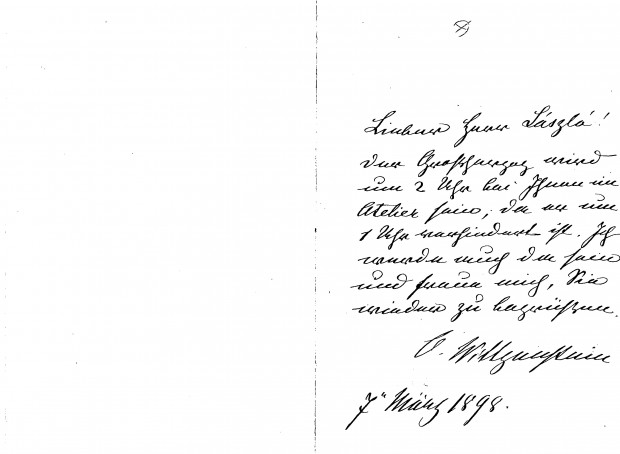 Lieber Herr László!
Der Großherzog wird
um 2 Uhr bei Ihnen im
Atelier sein, da er um
1 Uhr verhindert ist. Ich
werde auch da sein
und freue mich, Sie
wieder zu begrüßen.
O. Wittgenstein
7" März 1898.